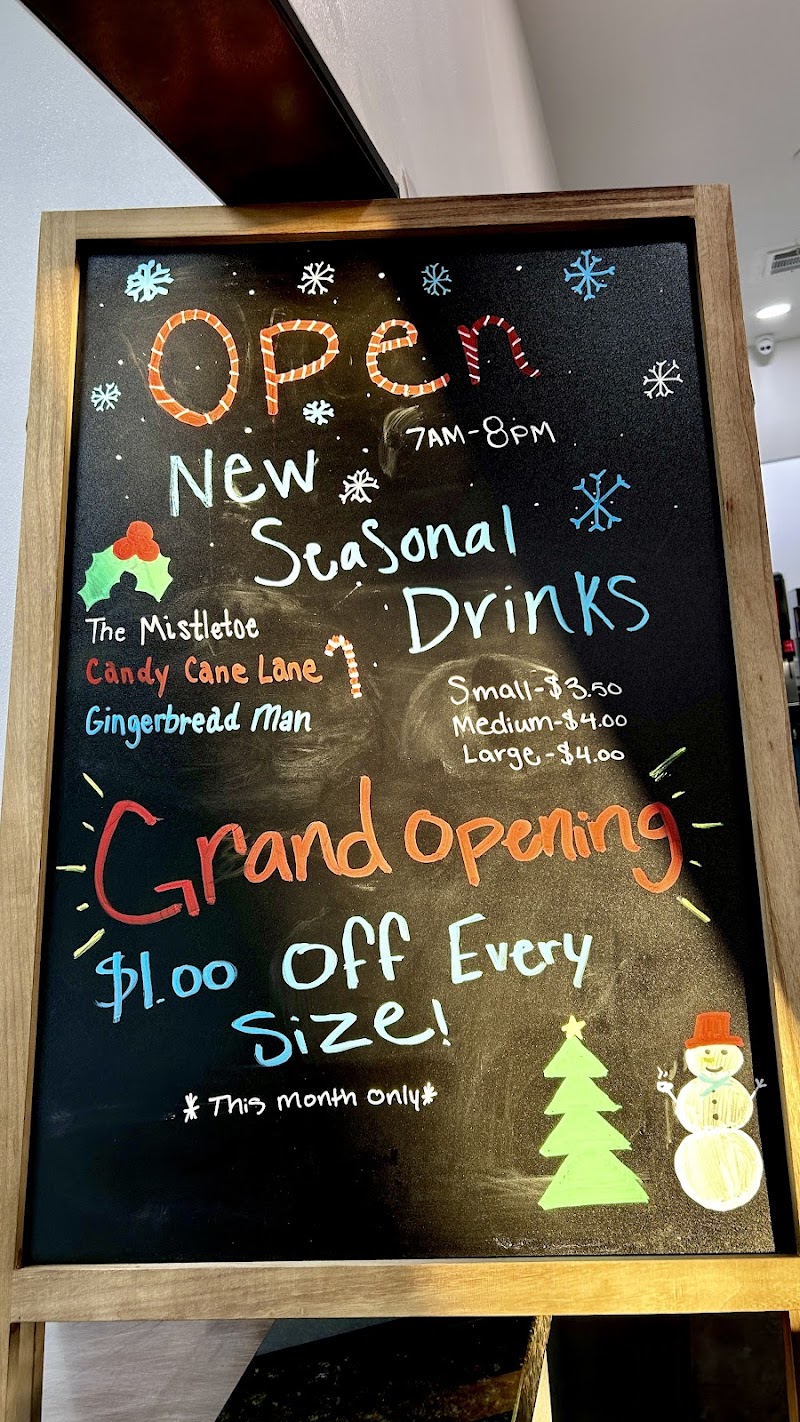 Open
7AM-8PM
New
Seasonal
Drinks
The Mistletoe
Candy Cane Lane
Gingerbread Man
Small-$3.50
Medium-$4.00
Large-$4.00
Grand opening
$1.00 off Every
Size!
*This month only*